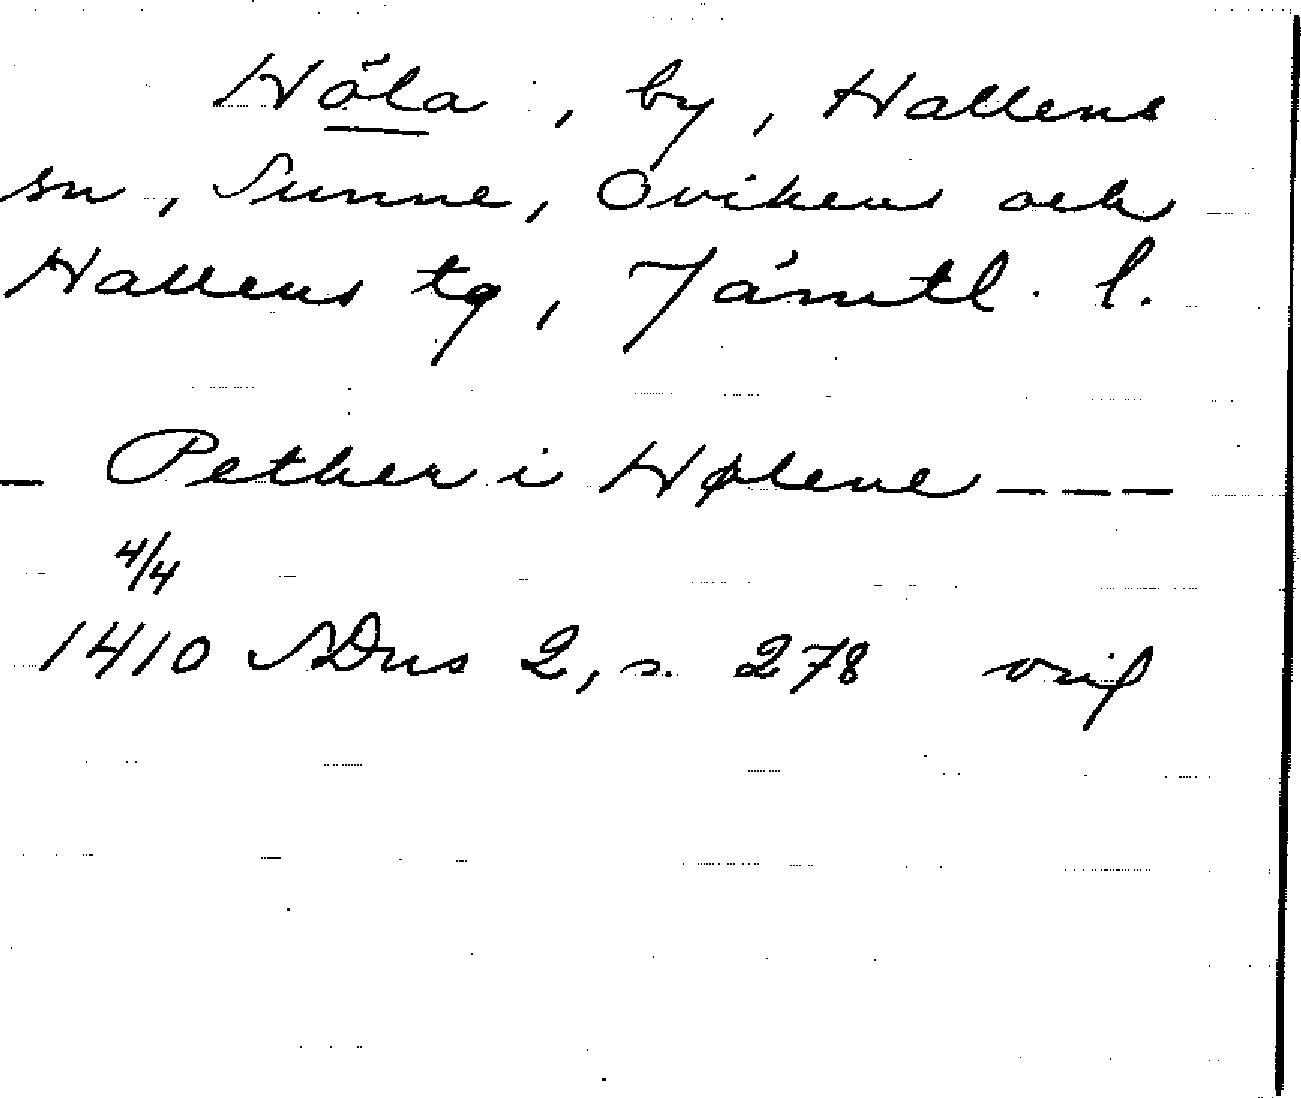 Höla, by, Hallens
sn, Sunne, Ovikens och
Hallens tg, Jämtl. l.
_ Pether i Hølene _ _ _
4/4
1410 SDns 2, s. 278 orig